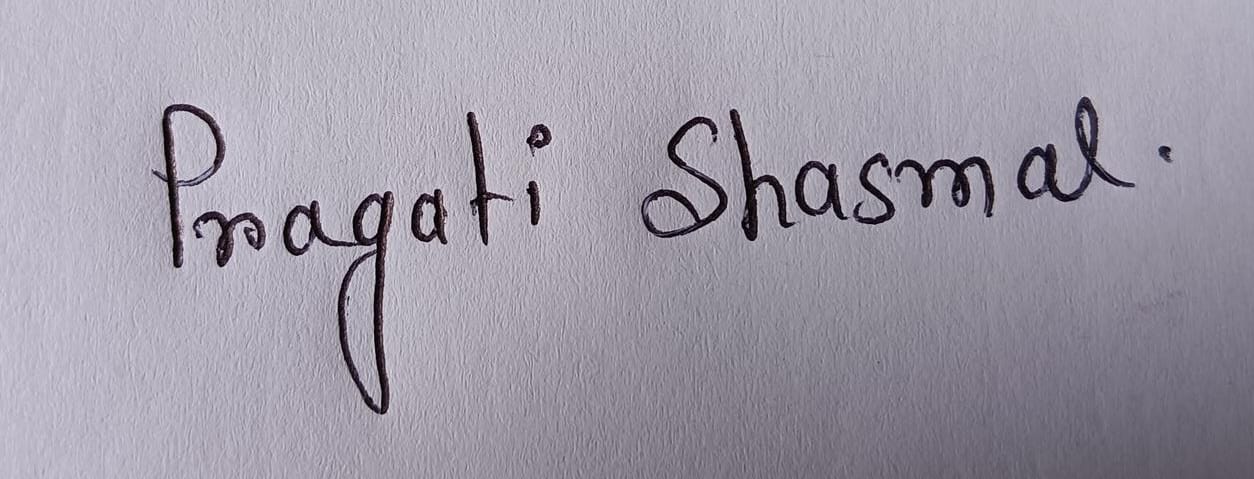 Pragati Shasmal.